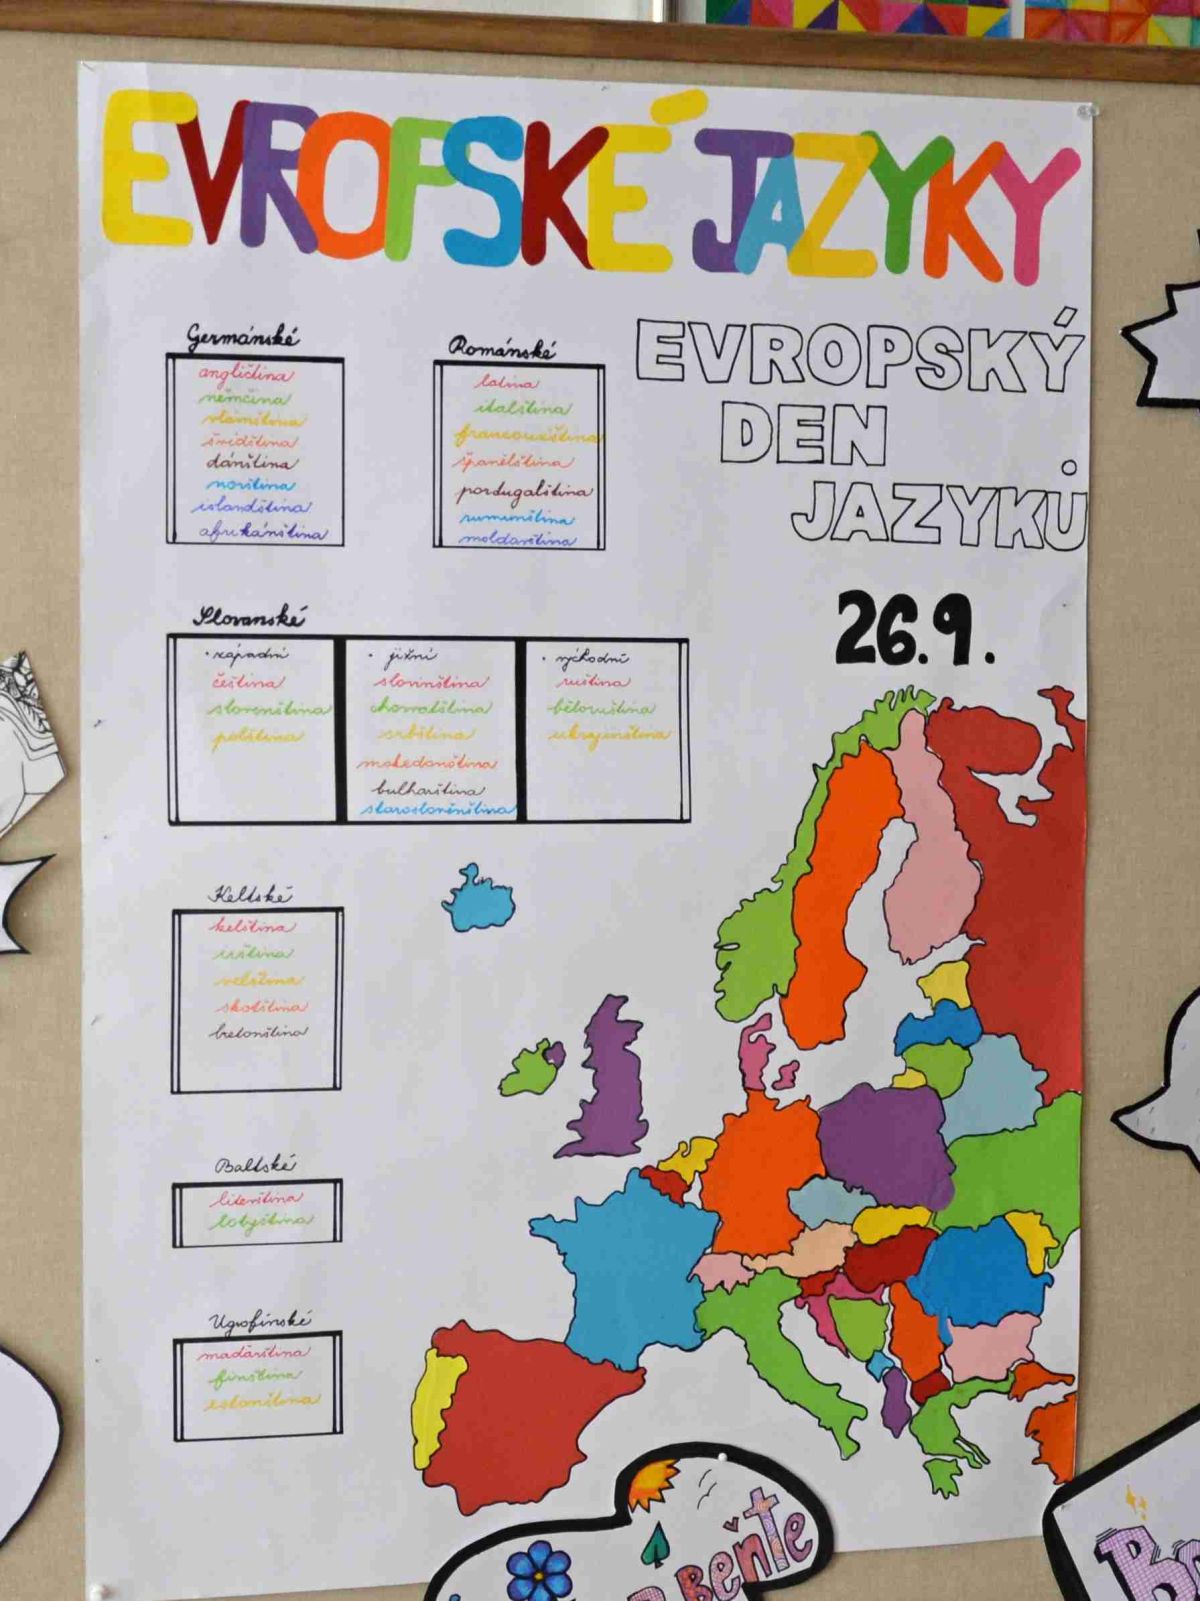 EVROPSKÉ JAZYKY
EVROPSKÝ
DEN
JAZYKŮ
26.9.
Germánské
angličtina
němčina
vlámština
švédština
dánština
norština
islandština
afrikánština
Románské
latina
italština
francouzština
španělština
portugalština
rumunština
moldavština
Slovanské
• západní
čeština
slovenština
polština
• jižní
slovinština
chorvatština
srbština
makedonština
bulharština
staroslověnština
• východní
ruština
běloruština
ukrajinština
Keltské
keltština
irština
velština
skotština
bretonština
Baltské
litevština
lotyština
Ugrofinské
maďarština
finština
estonština